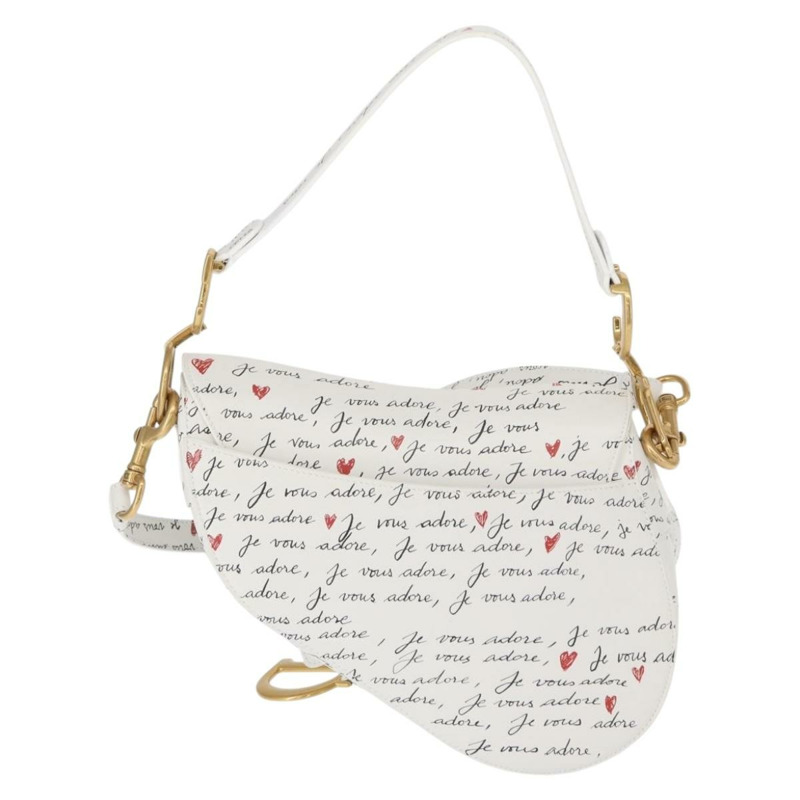 Je vous adore
adore, Je vous adore, Je vous adore
Je vous adore
vous adore, Je vous adore, Je vous
Je vous adore, Je vous adore, je
Je vous adore, je vous adore, Je vous adore
adore, Je vous adore, Je vous adore, Je vous adore
Je vous adore Je vous adore, Je vous adore, je
Je vous adore, Je vous adore, Je vous
adore, Je vous adore, Je vous adore,
adore, Je vous adore, Je vous adore,
vous adore
vous adore, Je vous adore, Je vous
adore, Je vous adore, Je vous
vous adore, Je vous adore
adore, Je vous adore
adore, Je vous adore
Je vous adore,
je vous